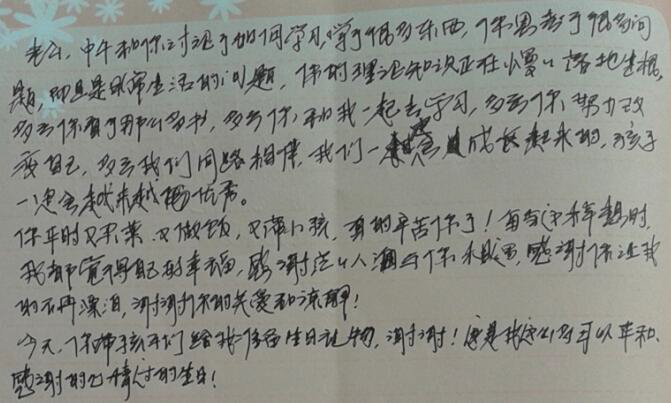 老公，中午和你讨论了如何学习，学了很多东西，你思考了很多问
题，而且是日常生活的问题，你的理论知识正在慢慢落地生根，
多亏你看了那么多书，多亏你和我一起去学习，多亏你努力改
变自己，多亏我们同路相伴，我们一定会成长起来的，孩子
一定会越来越优秀。
你平时又买菜又做饭，又带小孩，真的辛苦你了！每当这样想时，
我都觉得自己好幸福，感谢在人海与你相遇，感谢你让我
的不再漂泊，谢谢你的关爱和谅解！
今天，你带孩子们给我准备生日礼物，谢谢！这是我这么多年以平和、
感谢的心情过的生日！